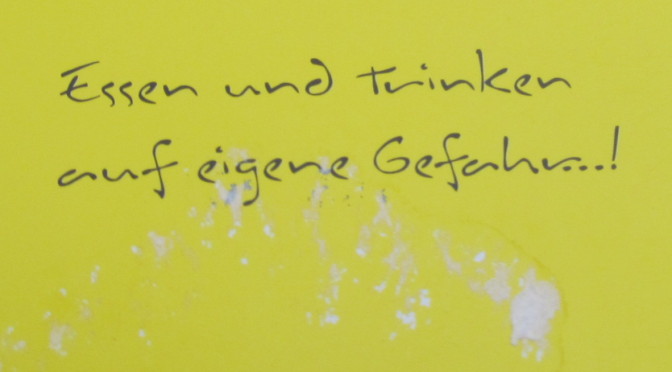 Essen und trinken
auf eigene Gefahr...!